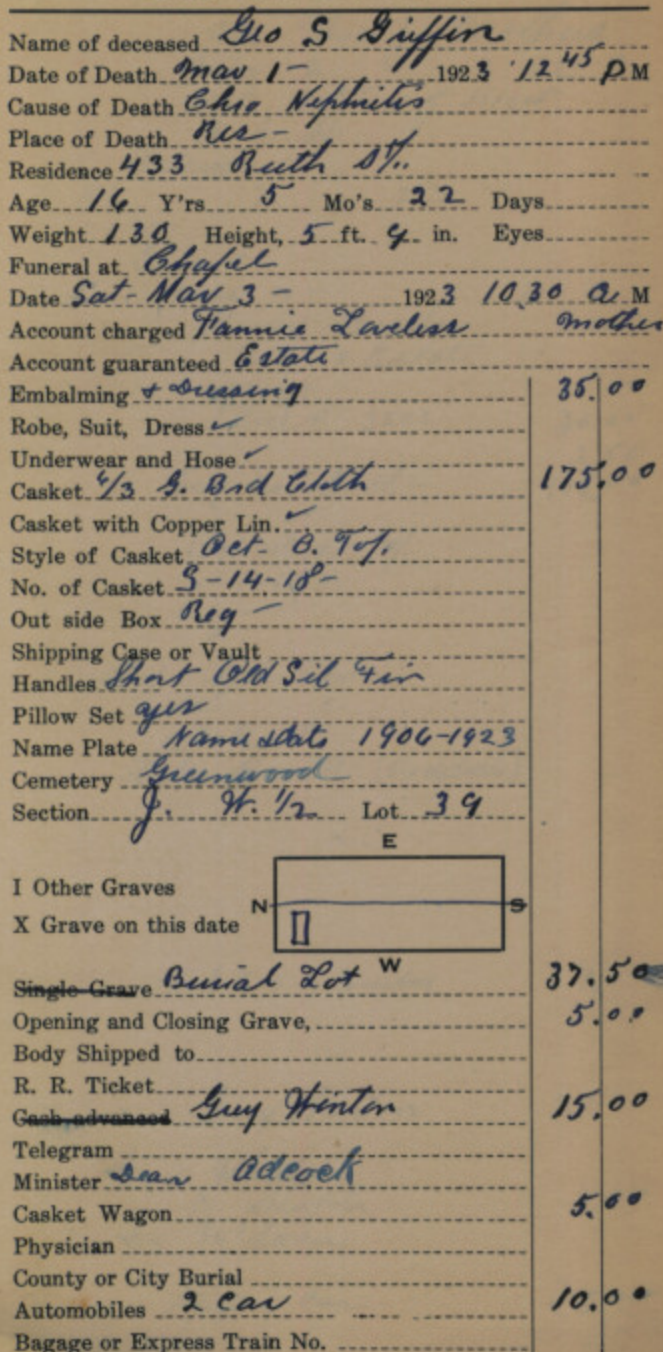 Name of deceased Geo S Griffin
Date of Death Mar 1 - 1923 12 45 P M
Cause of Death Chro Nephritis
Place of Death Res -
Residence 433 Ruth St.
Age 16 Y'rs 5 Mo's 22 Days
Weight 130 Height, 5 ft. 4 in. Eyes
Funeral at Chapel
Date Sat - Mar 3 - 1923 10 30 a M
Account charged Fannie Loveless mother
Account guaranteed Estate
Embalming + Dressing 35.00
Robe, Suit, Dress ✓
Underwear and Hose ✓
Casket 6/3 G. Brd Cloth 175.00
Casket with Copper Lin. ✓
Style of Casket Oct - O. Top.
No. of Casket S-14-18-
Out side Box Reg -
Shipping Case or Vault
Handles Short Old Sil Fin
Pillow Set yes
Name Plate Name & Date 1906-1923
Cemetery Greenwood
Section J. W. 1/2 Lot 39
E
I Other Graves
N S
X Grave on this date
W
Single Grave Burial Lot 37.50
Opening and Closing Grave, 5.00
Body Shipped to
R. R. Ticket
Cash advanced Guy Hinton 15.00
Telegram
Minister Dean Adcock
Casket Wagon 5.00
Physician
County or City Burial
Automobiles 2 Car 10.00
Bagage or Express Train No.